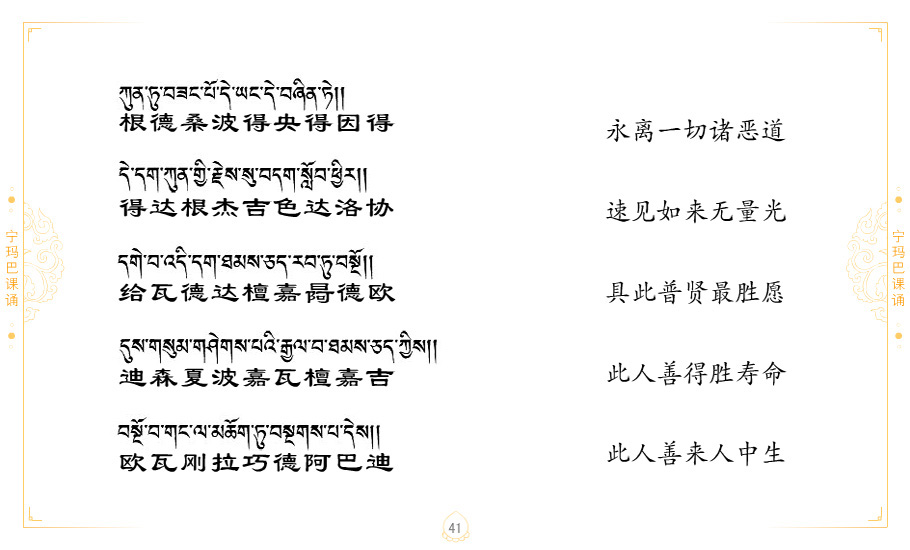 ཀུན་ཏུ་བཟང་པོ་དེ་ཡང་དེ་བཞིན་ཏེ།།
根德桑波得央得因得
དེ་དག་ཀུན་གྱི་རྗེས་སུ་བདག་སློབ་ཕྱིར།།
得达根杰吉色达洛协
དགེ་བ་འདི་དག་ཐམས་ཅད་རབ་ཏུ་བསྔོ།།
给瓦德达檀嘉哥德欧
དུས་གསུམ་གཤེགས་པའི་རྒྱལ་བ་ཐམས་ཅད་ཀྱིས།།
迪森夏波嘉瓦檀嘉吉
བསྔོ་བ་གང་ལ་མཆོག་ཏུ་བསྔགས་པ་དེས།།
欧瓦刚拉巧德阿巴迪
永离一切诸恶道
速见如来无量光
具此普贤最胜愿
此人善得胜寿命
此人善来人中生
宁玛巴课诵
宁玛巴课诵
41